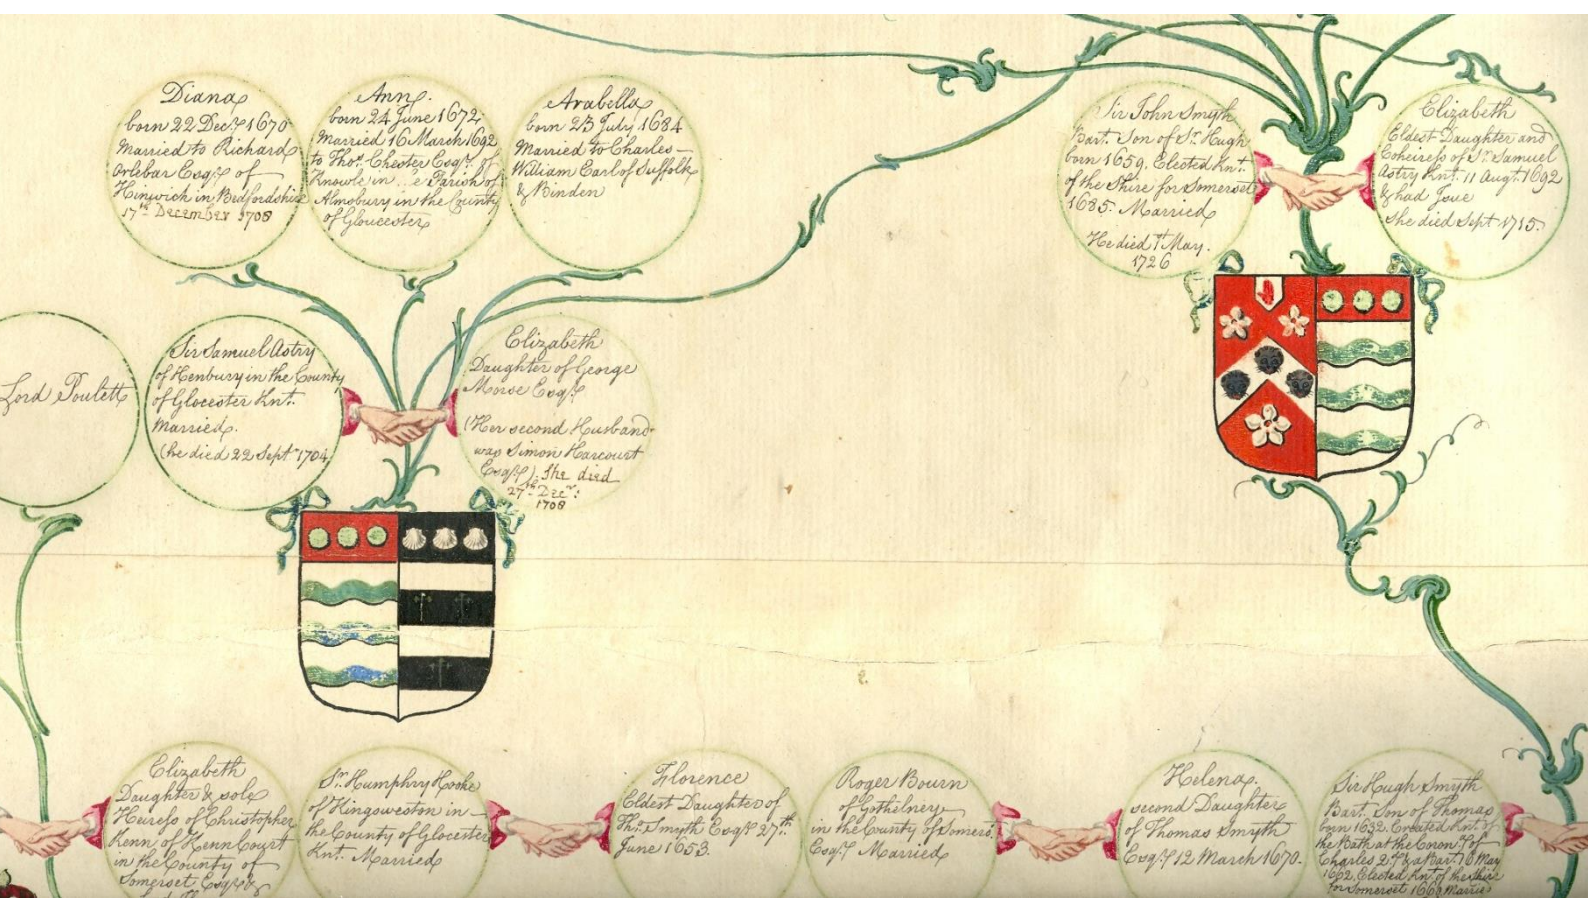 Diana
born 22 Dec.r 1670
Married to Richard
Orlebar Esq.r of
Hinwick in Bedfordshire
17th December 1708
Ann.
born 24 June 1672
Married 16 March 1692
to Tho.s Chester Esq.r of
Knowle in ...e Parish of
Almsbury in the County
of Gloucester
Arabella
born 23 July 1684
Married to Charles
William Earl of Suffolk
& Binden
Sir John Smyth
Bart. Son of S.r Hugh
born 1659. Elected Kn.t
of the Shire for Somerset
1685. Married
He died 1st May.
1726
Elizabeth
Eldest Daughter and
Coheiress of S.r Samuel
Astry Knt. 11 Aug.t 1692
& had Issue
She died Sept 1715.
Lord Poulett
Sir Samuel Astry
of Henbury in the County
of Glocester Knt.
Married.
(he died 22 Sept.r 1704
Elizabeth
Daughter of George
Morse Esq.r
(Her second Husband
was Simon Harcourt
Esq.r) She died
27th Dec.r:
1708
Elizabeth
Daughter & sole
Heiress of Christopher
Kenn of Kenn Court
in the County of
Somerset Esq.r &
S.r Humphry Hooke
of Kingsweston in
the County of Glocester
Knt. Married
Florence
Eldest Daughter of
Tho.s Smyth Esq.r 27th
June 1653.
Roger Bourn
of Gothilney
in the County of Somers.t
Esq.r Married
Helena.
second Daughter
of Thomas Smyth
Esq.r 12 March 1670.
Sir Hugh Smyth
Bart. Son of Thomas
born 1632. Created Knt. of
the Bath at the Coron. of
Charles 2.d & a Bar.t 16 May
1662. Elected Kn.t of the Shire
for Somerset 1660 Married